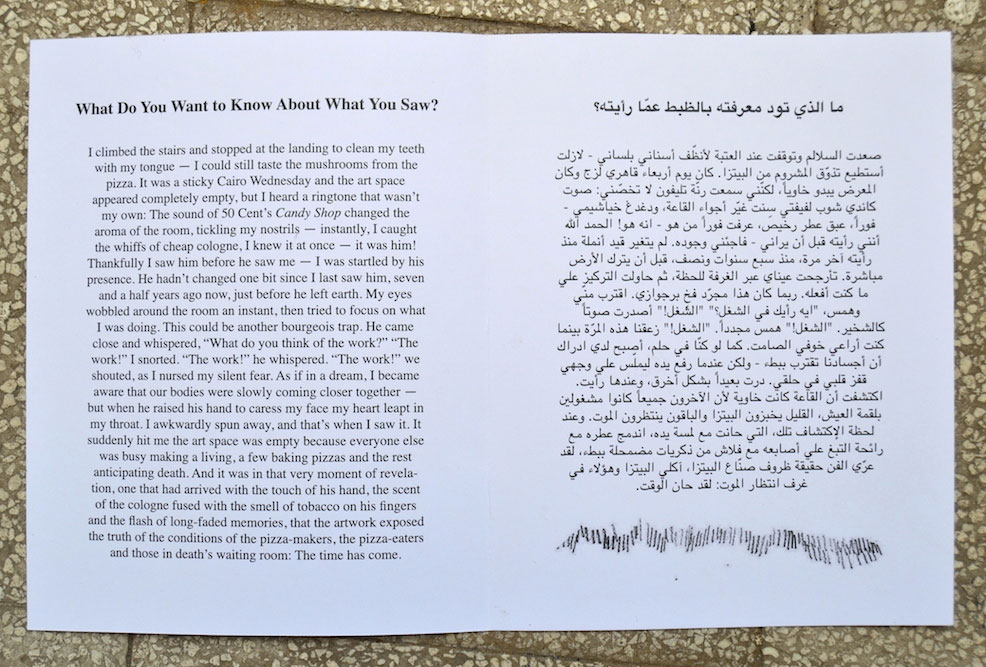 What Do You Want to Know About What You Saw?
I climbed the stairs and stopped at the landing to clean my teeth
with my tongue — I could still taste the mushrooms from the
pizza. It was a sticky Cairo Wednesday and the art space
appeared completely empty, but I heard a ringtone that wasn't
my own: The sound of 50 Cent's Candy Shop changed the
aroma of the room, tickling my nostrils — instantly, I caught
the whiffs of cheap cologne, I knew it at once — it was him!
Thankfully I saw him before he saw me — I was startled by his
presence. He hadn't changed one bit since I last saw him, seven
and a half years ago now, just before he left earth. My eyes
wobbled around the room an instant, then tried to focus on what
I was doing. This could be another bourgeois trap. He came
close and whispered, “What do you think of the work?” “The
work!” I snorted. “The work!” he whispered. “The work!” we
shouted, as I nursed my silent fear. As if in a dream, I became
aware that our bodies were slowly coming closer together —
but when he raised his hand to caress my face my heart leapt in
my throat. I awkwardly spun away, and that's when I saw it. It
suddenly hit me the art space was empty because everyone else
was busy making a living, a few baking pizzas and the rest
anticipating death. And it was in that very moment of revela-
tion, one that had arrived with the touch of his hand, the scent
of the cologne fused with the smell of tobacco on his fingers
and the flash of long-faded memories, that the artwork exposed
the truth of the conditions of the pizza-makers, the pizza-eaters
and those in death's waiting room: The time has come.
ما الذي تود معرفته بالظبط عمّا رأيته؟
صعدت السلالم وتوقفت عند العتبة لأنظّف أسناني بلساني - لازلت
أستطيع تذوّق المشروم من البيتزا. كان يوم أربعاء قاهري لزج وكان
المعرض يبدو خاوياً، لكنّني سمعت رنّة تليفون لا تخصّني: صوت
كاندي شوب لفيفتي سنت غيّر أجواء القاعة، ودغدغ خياشيمي -
فوراً، عبق عطر رخيص، عرفت فوراً من هو - انه هو! الحمد الله
أنني رأيته قبل أن يراني - فاجئني وجوده. لم يتغير قيد أنملة منذ
رأيته آخر مرة، منذ سبع سنوات ونصف، قبل أن يترك الأرض
مباشرة. تارجحت عيناي عبر الغرفة للحظة، ثم حاولت التركيز علي
ما كنت أفعله. ربما كان هذا مجرّد فخ برجوازي. اقترب منّي
وهمس، "ايه رأيك في الشغل؟" "الشّغل!" أصدرت صوتاً
كالشخير. "الشغل!" همس مجدداً. "الشغل!" زعقنا هذه المرّة بينما
كنت أراعي خوفي الصامت. كما لو كنّا في حلم، أصبح لدي ادراك
أن أجسادنا تقترب ببطء - ولكن عندما رفع يده ليملّس علي وجهي
قفز قلبي في حلقي. درت بعيداً بشكل أخرق، وعندها رأيت.
اكتشفت أن القاعة كانت خاوية لأن الآخرون جميعاً كانوا مشغولين
بلقمة العيش، القليل يخبزون البيتزا والباقون ينتظرون الموت. وعند
لحظة الإكتشاف تلك، التي حانت مع لمسة يده، اندمج عطره مع
رائحة التبغ علي أصابعه مع فلاش من ذكريات مضمحلة ببطء، لقد
عرّي الفن حقيقة ظروف صنّاع البيتزا، أكلي البيتزا وهؤلاء في
غرف انتظار الموت: لقد حان الوقت.